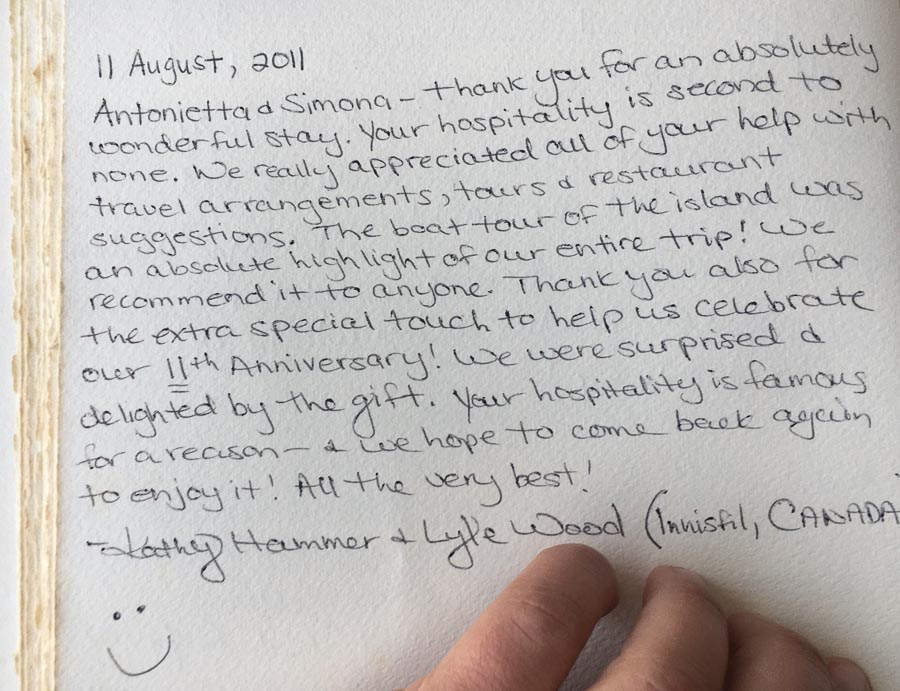 11 August, 2011
Antonietta & Simona - thank you for an absolutely
wonderful stay. Your hospitality is second to
none. We really appreciated all of your help with
travel arrangements, tours & restaurant
suggestions. The boat tour of the island was
an absolute highlight of our entire trip! We
recommend it to anyone. Thank you also for
the extra special touch to help us celebrate
our 11th Anniversary! We were surprised &
delighted by the gift. Your hospitality is famous
for a reason - & we hope to come back again
to enjoy it! All the very best!
- Kathy Hammer & Lyle Wood (Innisfil, CANADA